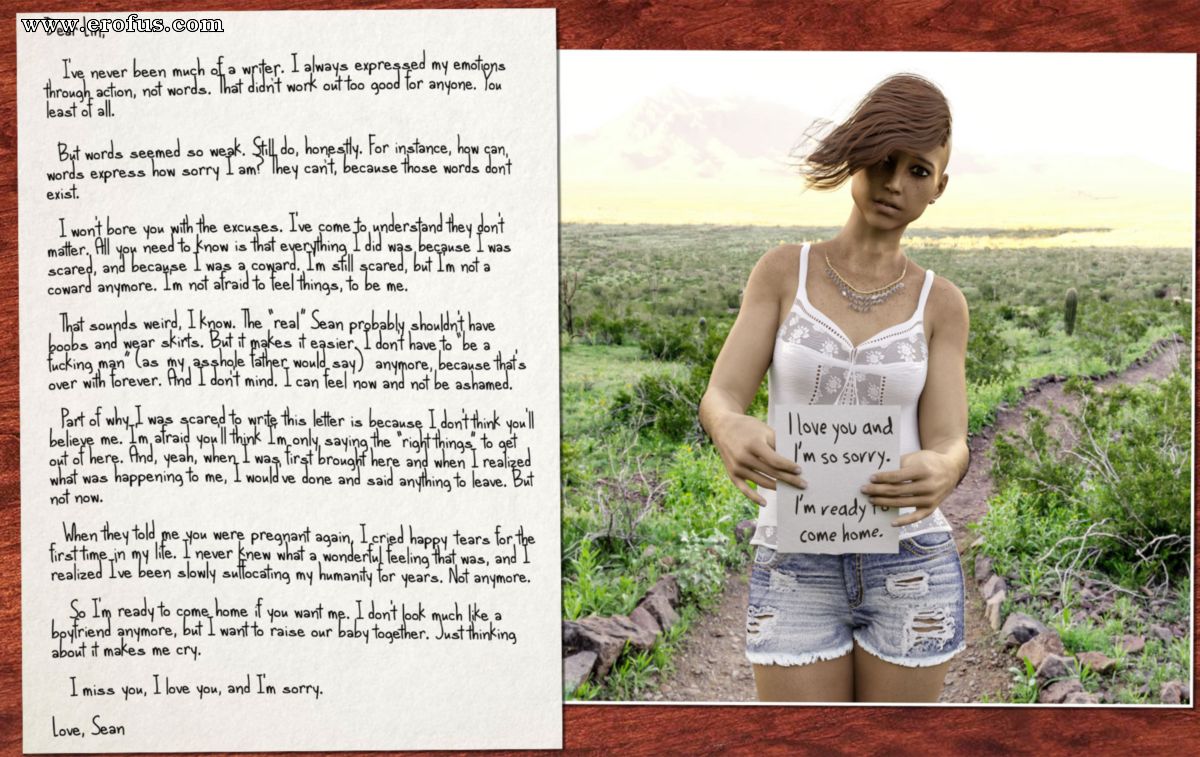 www.erofus.com
I've never been much of a writer. I always expressed my emotions
through action, not words. That didn't work out too good for anyone. You
least of all.
But words seemed so weak. Still do, honestly. For instance, how can
words express how sorry I am? They can't, because those words don't
exist.
I won't bore you with the excuses. I've come to understand they don't
matter. All you need to know is that everything I did was because I was
scared, and because I was a coward. I'm still scared, but I'm not a
coward anymore. I'm not afraid to feel things, to be me.
That sounds weird, I know. The "real" Sean probably shouldn't have
boobs and wear skirts. But it makes it easier. I don't have to "be a
fucking man" (as my asshole father would say) anymore, because that's
over with forever. And I don't mind. I can feel now and not be ashamed.
Part of why I was scared to write this letter is because I don't think you'll
believe me. I'm afraid you'll think I'm only saying the "right things" to get
out of here. And, yeah, when I was first brought here and when I realized
what was happening to me, I would've done and said anything to leave. But
not now.
When they told me you were pregnant again, I cried happy tears for the
first time in my life. I never knew what a wonderful feeling that was, and I
realized I've been slowly suffocating my humanity for years. Not anymore.
So I'm ready to come home if you want me. I don't look much like a
boyfriend anymore, but I want to raise our baby together. Just thinking
about it makes me cry.
I miss you, I love you, and I'm sorry.
Love, Sean
I love you and
I'm so sorry.
I'm ready to
come home.